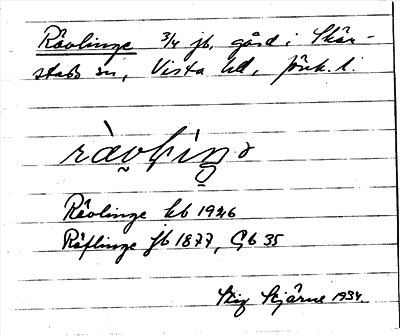 Rävlinge 3/4 jb. gård i Skär-
stads sn, Vista hd, Jönk. l.
Rävlinge kb 1926
Räflinge jb 1877, Gb 35
Stig Bjärne 1934.